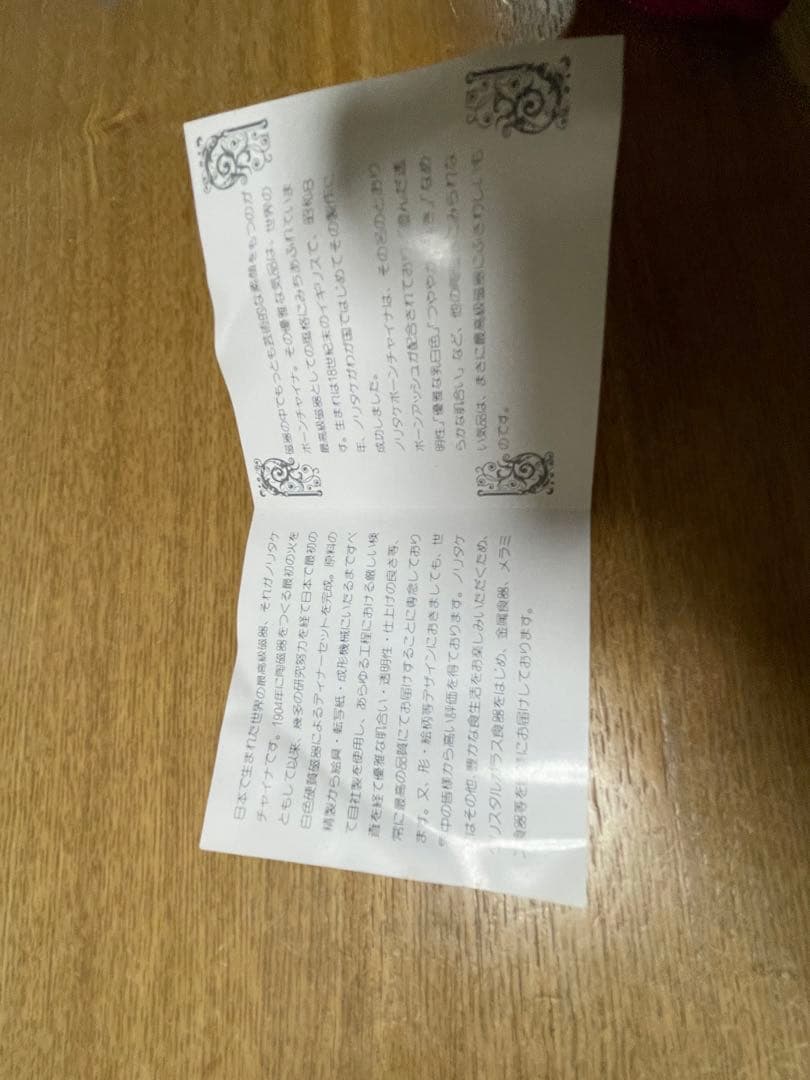 日本で生まれた世界の最高級磁器、それがノリタケ
チャイナです。1904年に陶磁器をつくる最初の火を
ともして以来、幾多の研究努力を経て日本で最初の
白色硬質磁器によるディナーセットを完成。原料の
精製から絵具・転写紙・成形機械にいたるまですべ
て自社製を使用し、あらゆる工程における厳しい検
査を経て優雅な肌合い・透明性・仕上げの良さ等、
常に最高の品質にてお届けすることに専念しており
ます。又、形・絵柄等デザインにおきましても、世
界中の皆様から高い評価を得ております。ノリタケ
はその他、豊かな食生活をお楽しみいただくため、
クリスタルグラス食器をはじめ、金属食器、メラミ
ン食器等を にお届けしております。
磁器の中でもっとも芸術的な素顔をもつのが
ボーンチャイナ。その優雅な気品は、世界の
最高級磁器としての風格にみちあふれていま
す。生まれは18世紀末のイギリスで、昭和8
年、ノリタケがわが国ではじめてその製作に
成功しました。
ノリタケボーンチャイナは、その名のとおり
ボーンアッシュが配合されており「澄んだ透
明性」「優雅な乳白色」「つややかな 」「なめ
らかな肌合い」など、他の にみられな
い気品は、まさに最高級磁器にふさわしいも
のです。